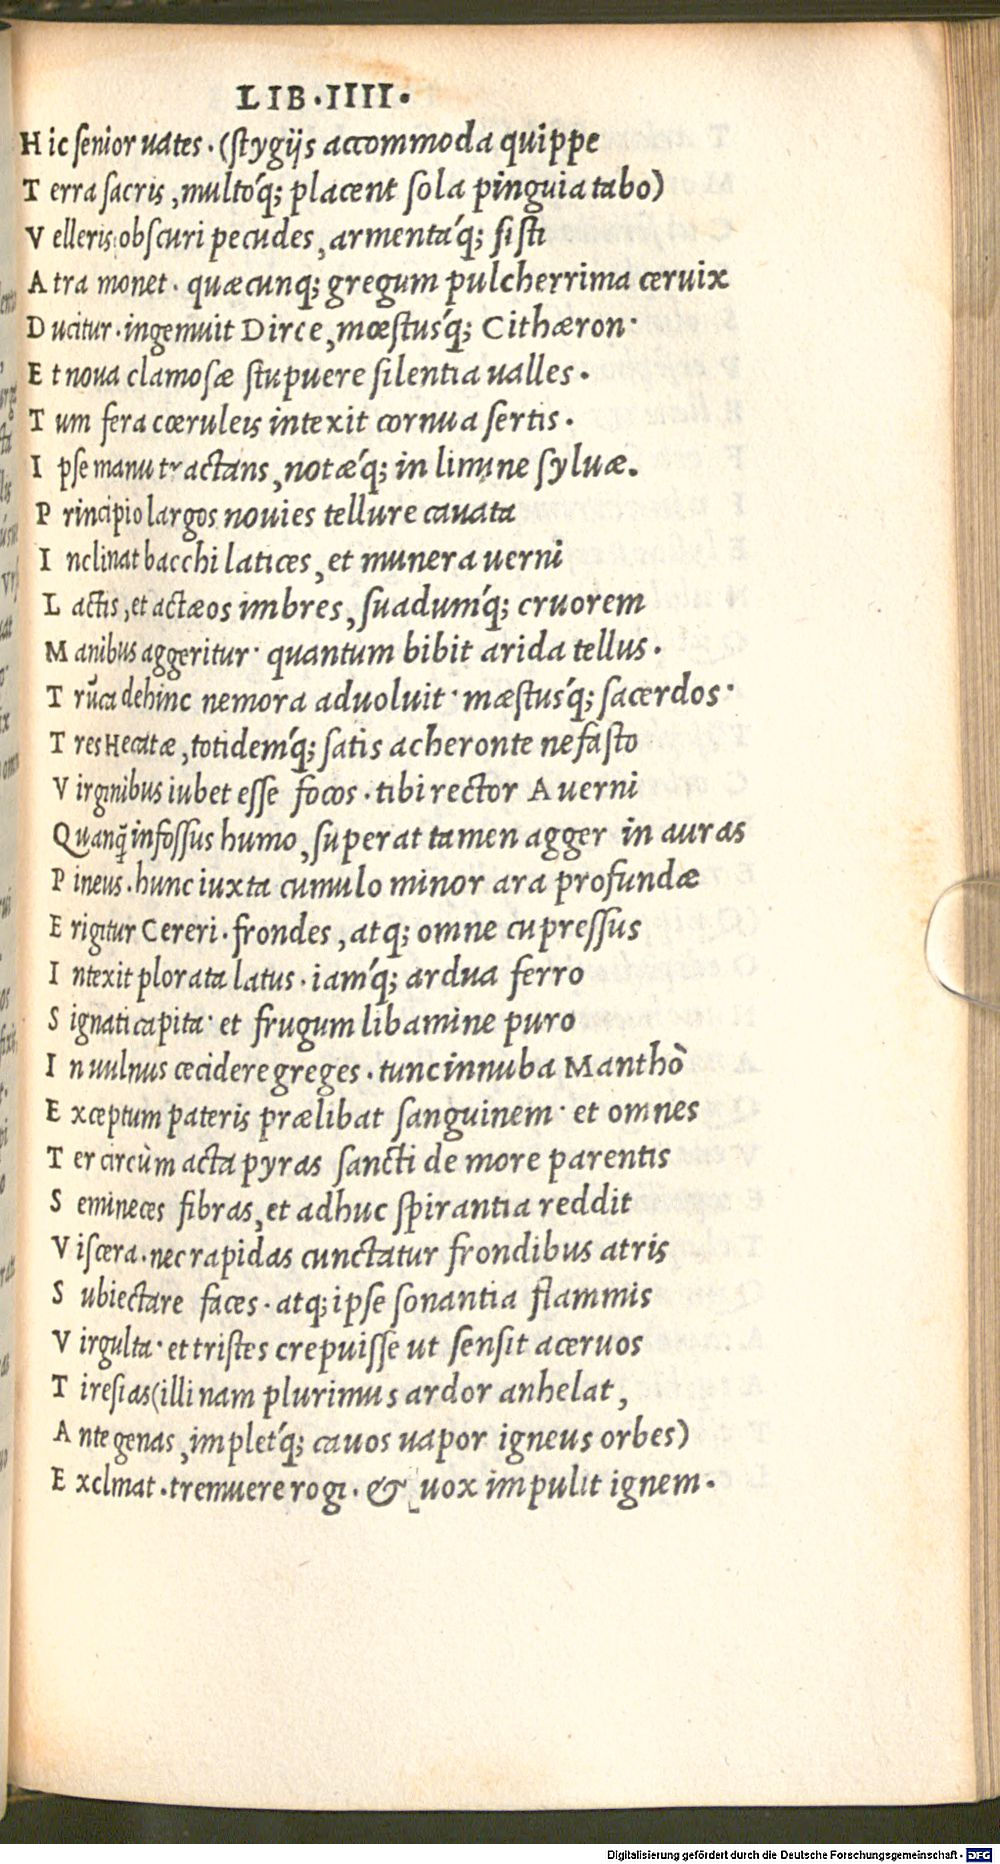 LIB·IIII·
H ic senior uates·(stygijs accommoda quippe
T erra sacris, multóq; placent sola pinguia tabo)
V elleris obscuri pecudes, armentáq; sisti
A tra monet· quæcunq; gregum pulcherrima ceruix
D ucitur·ingemuit Dirce, mœstusq́; Cithæron·
E t noua clamosæ stupuere silentia ualles·
T um fera cœruleis intexit cornua sertis·
I pse manu tractans, notæq́; in limine syluæ.
P rincipio largos nouies tellure cauata
I nclinat bacchi latices, et munera uerni
L actis, et actæos imbres, suadumq́; cruorem
M anibus aggeritur· quantum bibit arida tellus·
T rũca dehinc nemora aduoluit· mæstusq́; sacerdos·
T res Hecatæ, totidemq́; satis acheronte nefasto
V irginibus iubet esse focos·tibi rector Auerni
Quanq̃ infossus humo, superat tamen agger in auras
P ineus·hunc iuxta cumulo minor ara profundæ
E rigitur Cereri·frondes, atq; omne cupressus
I ntexit plorata latus·iamq́; ardua ferro
S ignati capita· et frugum libamine puro
I n uulnus cecidere greges·tunc innuba Manthò
E xceptum pateris prælibat sanguinem· et omnes
T er circùm acta pyras sancti de more parentis
S emineces fibras, et adhuc spirantia reddit
V iscera·nec rapidas cunctatur frondibus atris
S ubiectare faces·atq; ipse sonantia flammis
V irgulta· et tristes crepuisse ut sensit aceruos
T iresias(illi nam plurimus ardor anhelat,
A nte genas, impletq́; cauos uapor igneus orbes)
E xclmat·tremuere rogi·& uox impulit ignem·
Digitalisierung gefördert durch die Deutsche Forschungsgemeinschaft - DFG